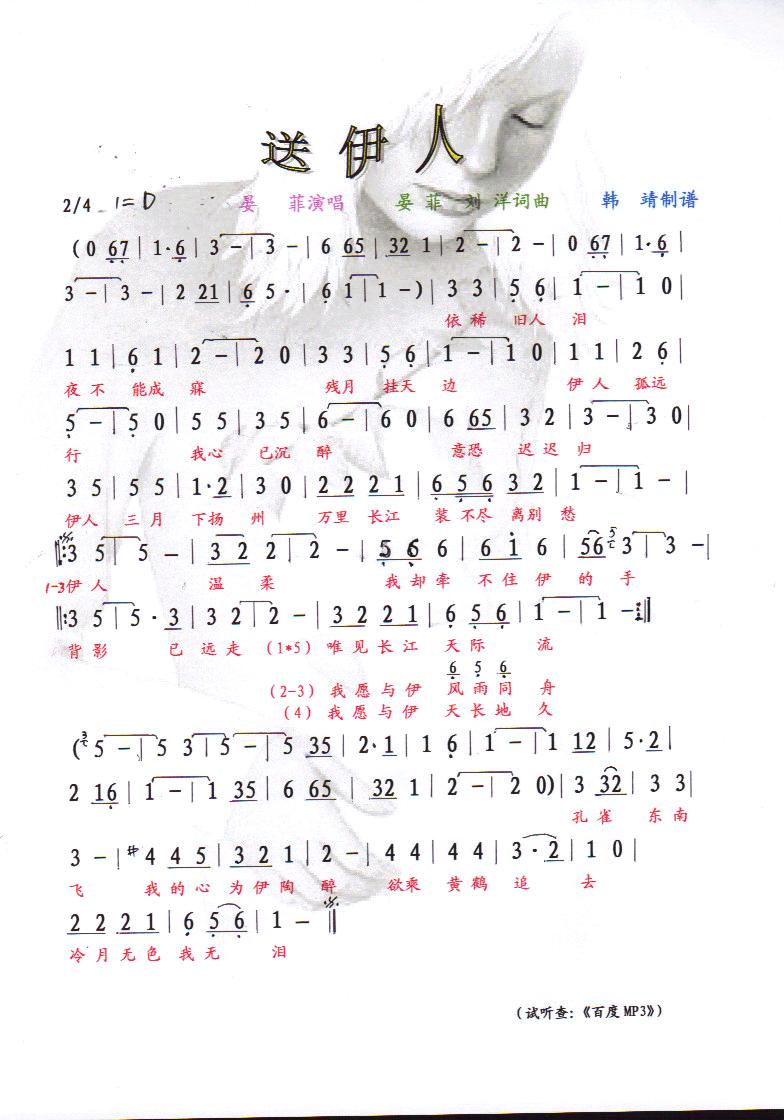 送伊人
2/4 1=D 晏 菲演唱 晏 菲 刘 洋词曲 韩 靖制谱
(0 67 | 1·6 | 3 – | 3 – | 6 65 | 32 1 | 2 – | 2 – | 0 67 | 1·6 |
3 – | 3 – | 2 21 | 6 5· | 6 1 | 1 –) | 3 3 | 5 6 | 1 – | 1 0 |
依稀 旧人 泪
1 1 | 6 1 | 2 – | 2 0 | 3 3 | 5 6 | 1 – | 1 0 | 1 1 | 2 6 |
夜不 能成 寐 残月 挂天 边 伊人 孤远
5 – | 5 0 | 5 5 | 3 5 | 6 – | 6 0 | 6 65 | 3 2 | 3 – | 3 0 |
行 我心 已沉 醉 意恐 迟迟 归
3 5 | 5 5 | 1·2 | 3 0 | 2 2 2 1 | 6 5 6 3 2 | 1 – | 1 – |
伊人 三月 下扬 州 万里 长江 装不尽 离别 愁
‖: 3 5 | 5 – | 3 2 2 | 2 – | 5 6 6 | 6 i 6 | 56 3 | 3 – |
1-3伊人 温 柔 我却牵 不住伊 的 手
‖: 3 5 | 5 · 3 | 3 2 | 2 – | 3 2 2 1 | 6 5 6 | 1 – | 1 – :‖
背影 已 远走 (1*5) 唯见长江 天际 流
6 5 6
(2-3) 我愿与伊 风雨同 舟
(4) 我愿与伊 天长地 久
(5 – | 5 3 | 5 – | 5 35 | 2·1 | 1 6 | 1 – | 1 12 | 5·2 |
2 16 | 1 – | 1 35 | 6 65 | 32 1 | 2 – | 2 0) | 3 32 | 3 3 |
孔雀 东南
3 – | #4 4 5 | 3 2 1 | 2 – | 4 4 | 4 4 | 3·2 | 1 0 |
飞 我的心 为伊陶 醉 欲乘 黄鹤 追 去
2 2 2 1 | 6 5 6 | 1 – ‖
冷月无色 我无 泪
(试听查:《百度MP3》)